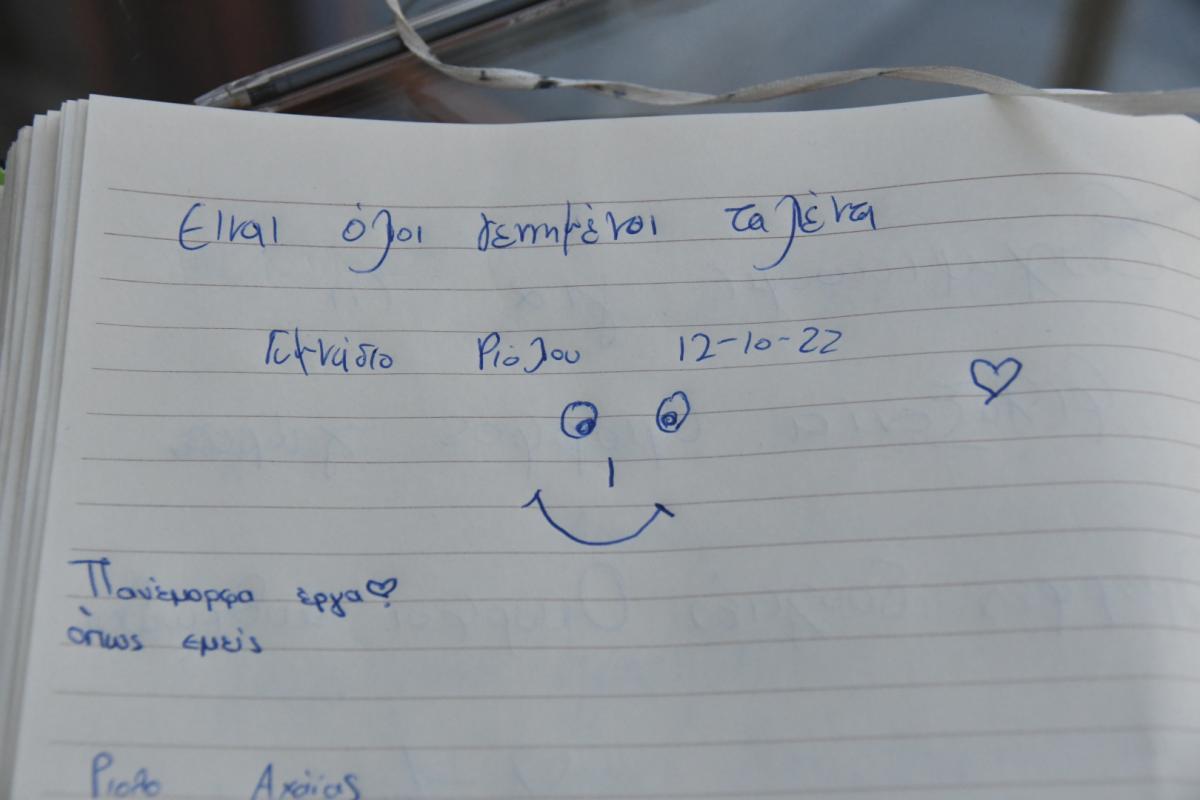 Είναι όλοι γεννημένοι ταλέντα
Γυμνάσιο Ριόλου 12-10-22
Πανέμορφα έργα
όπως εμείς
Ριολο Αχαΐας